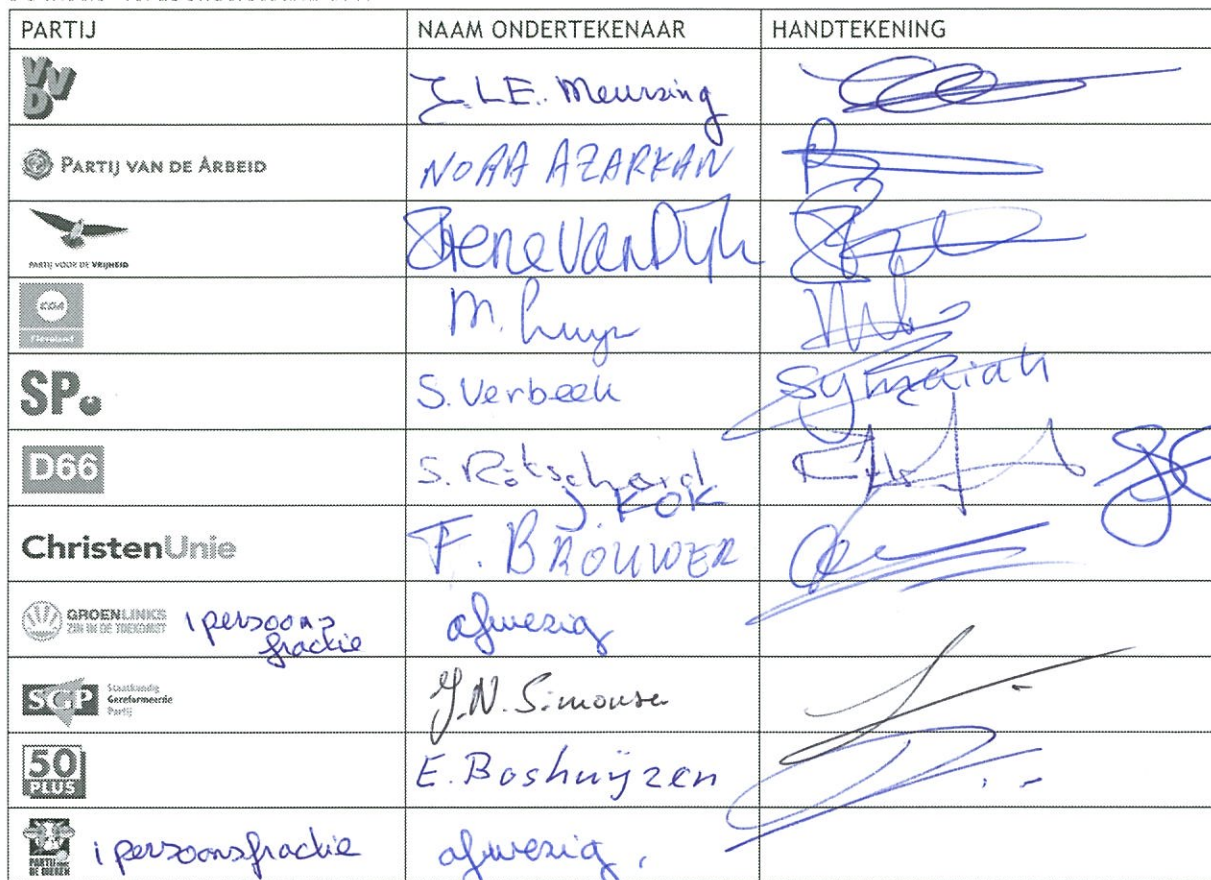 PARTIJ NAAM ONDERTEKENAAR HANDTEKENING
VVD J.L.E. Meursing
PARTIJ VAN DE ARBEID NOAA AZARKAN
PARTIJ VOOR DE VRIJHEID Irene van Dijk
CDA Flevoland M. Luyer
SP. S. Verbeek Symaiah
D66 S. Rotschard
J. KOK
ChristenUnie F. BROUWER
GROENLINKS 1 persoons afwezig
ZIN IN DE TOEKOMST fractie
SGP Staatkundig Gereformeerde Partij J.N. Simonse
50 PLUS E. Boshuijzen
PARTIJ VOOR DE DIEREN 1 persoonsfractie afwezig.